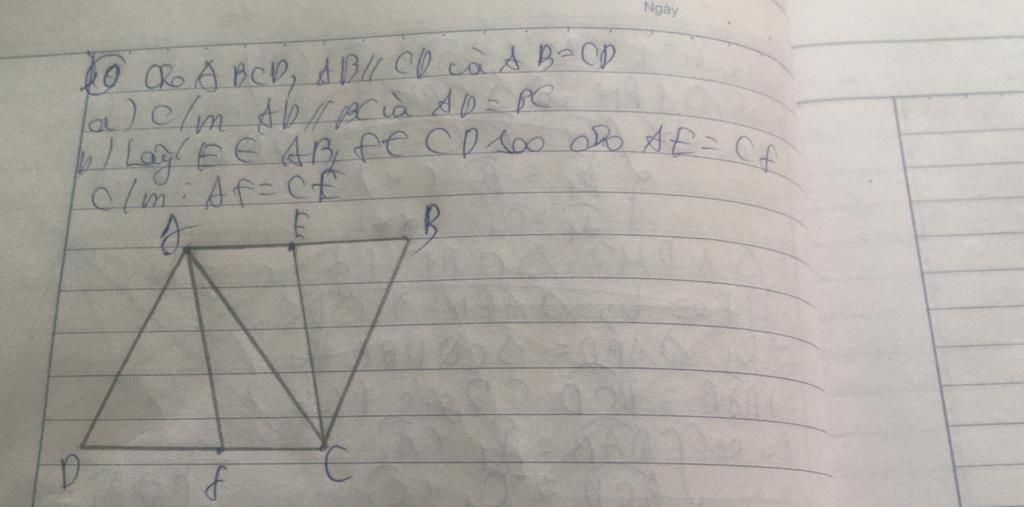 Ngày
10 Cho ABCD, AB // CD và AB = CD
a) C/m AD // BC và AD = BC
b) Lấy E ∈ AB, F ∈ CD sao cho AE = CF
C/m: AF = CE
A E B
D F C